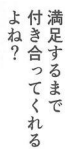 満足するまで
付き合ってくれる
よね?